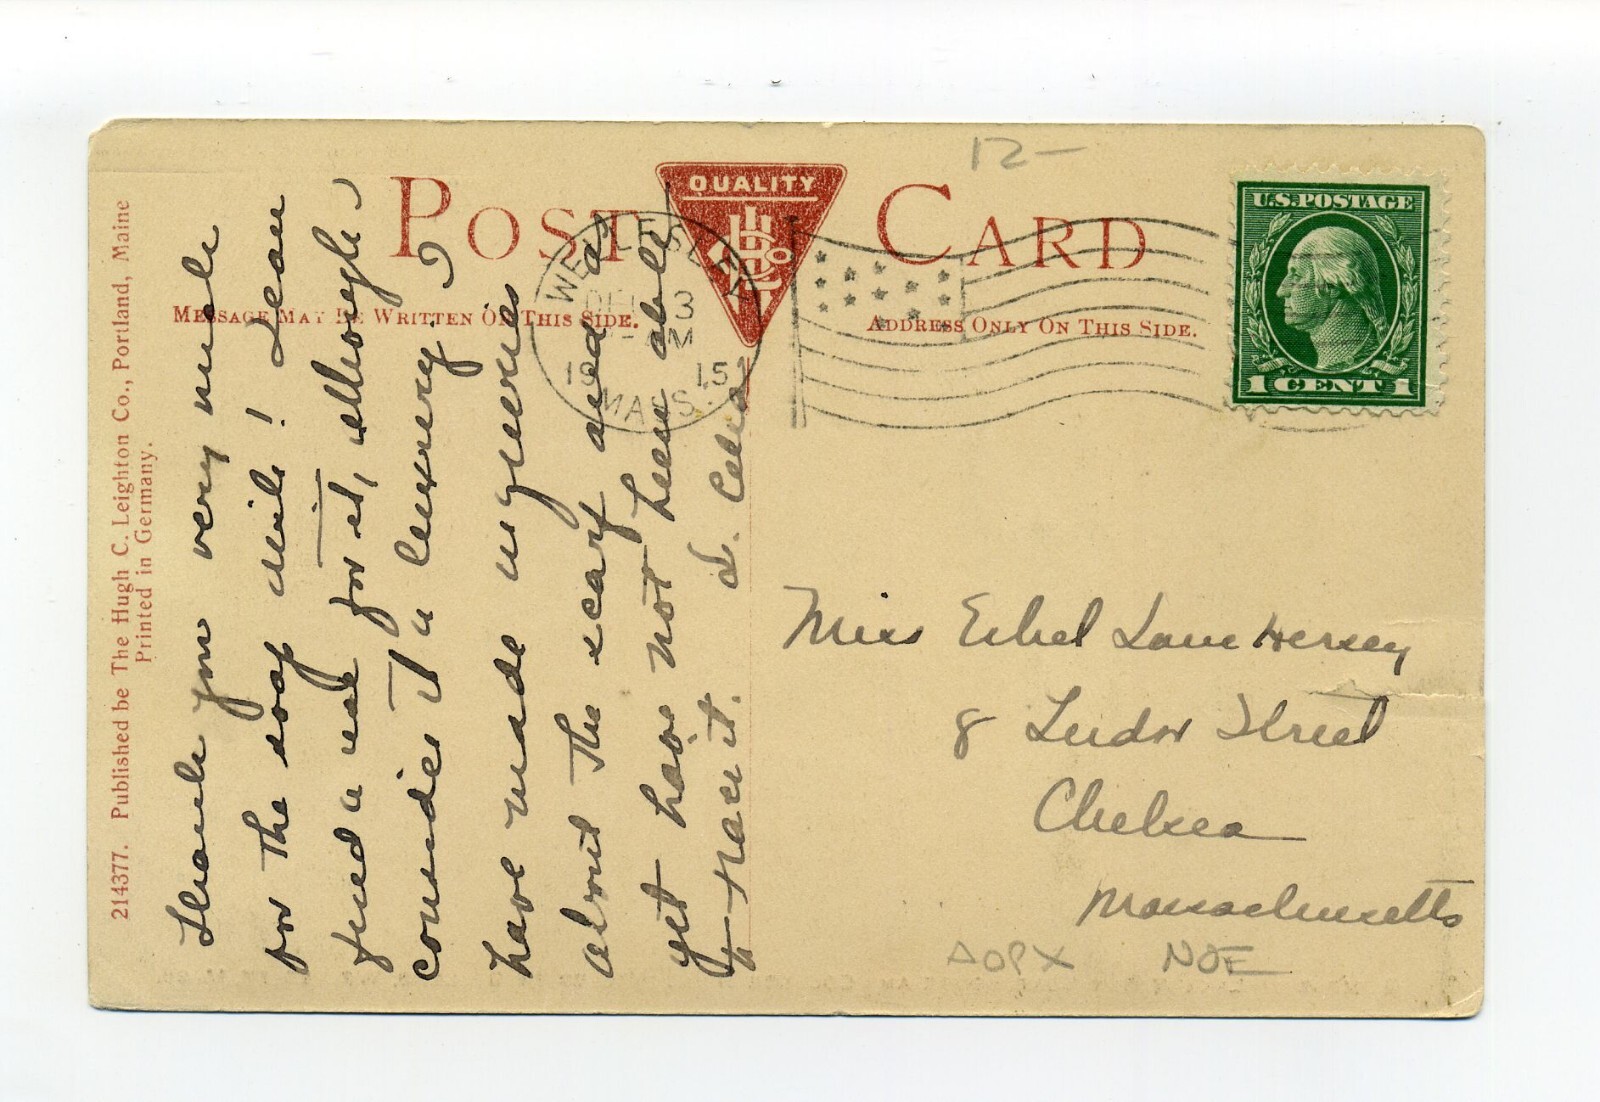 12-
POST CARD
QUALITY
HLCo
MESSAGE MAY BE WRITTEN ON THIS SIDE.
ADDRESS ONLY ON THIS SIDE.
U.S. POSTAGE
1 CENT 1
WELLESLEY
DEC 3
M
1915
MASS.
214377. Published be The Hugh C. Leighton Co., Portland, Maine
Printed in Germany.
Thank you very much
for the soap dish! I can
find a use for it, although I
consider it a luxury. I
have made inquiries
about the scarf and as
yet have not been able
to trace it. I. Celia
Miss Ethel Lane Hersey
8 Tudor Street
Chelsea
Massachusetts
AOPX NOE